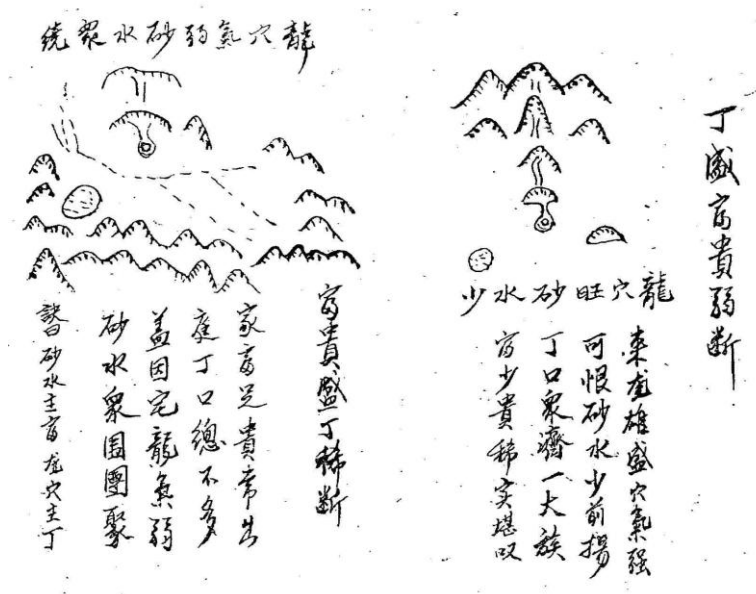 丁盛富貴弱断
龍穴旺砂水少
来龙雄盛穴氣强
可恨砂水少前揚
丁口衆濟一大族
富少貴稀实堪叹
龍穴氣弱砂水衆绕
富貴盛丁稀断
家富足貴常出
庭丁口總不多
盖因宅龍氣弱
砂水衆围團聚
訣曰砂水主富龙穴主丁